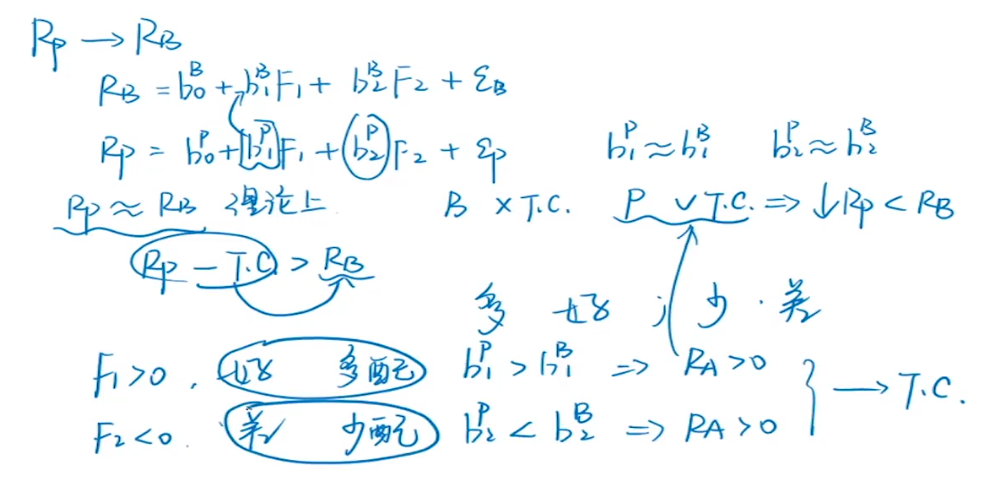 Rp → RB
RB = b₀ᴮ + b₁ᴮF₁ + b₂ᴮF₂ + εB
Rp = b₀ᴾ + b₁ᴾF₁ + b₂ᴾF₂ + εp b₁ᴾ ≈ b₁ᴮ b₂ᴾ ≈ b₂ᴮ
Rp ≈ RB 理论上 B × T.C. P ∨ T.C. ⇒ ↓Rp < RB
Rp − T.C > RB
多 好 ; 少 · 差
F₁>0 , 好 多配 b₁ᴾ > b₁ᴮ ⇒ RA>0
F₂<0 . 差 少配 b₂ᴾ < b₂ᴮ ⇒ RA>0 } → T.C.